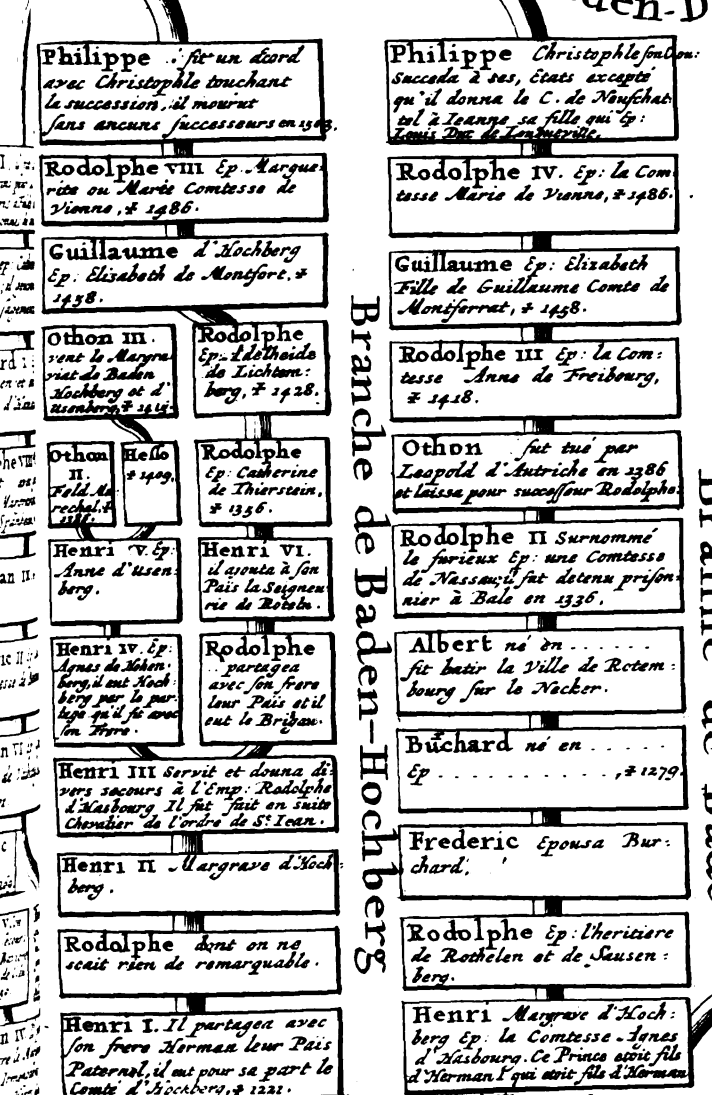 Philippe fit un acord
avec Christophle touchant
la succession, il mourut
sans ancuns successeurs en 1503.
Rodolphe VIII Ep. Margue
rite ou Marie Comtesse de
Vienne, ‡ 1486.
Guillaume d'Hochberg
Ep: Elisabeth de Montfort, ‡
1458.
Othon III.
vent le Margra
viat de Baden
Hochberg et d'
Usenberg, ‡
Rodolphe
Ep: Adelheide
de Lichtem:
berg, ‡ 1428.
Othon
II.
Feld Ma
rechal, ‡
Hesso
‡ 1409.
Rodolphe
Ep: Catherine
de Thierstein,
‡ 1356.
Henri V. Ep:
Anne d'Usen
berg.
Henri VI.
il ajouta à son
Païs la Seigneu
rie de
Henri IV. Ep:
Agnes de Hohen
berg, il eut Hoch:
berg par le par
tage qu'il fit avec
son Frere.
Rodolphe
partagea
avec son frere
leur Païs et il
eut le Brisgau.
Henri III Servit et donna di
vers secours à l'Emp: Rodolphe
d'Hasbourg Il fut fait en suite
Chevalier de l'ordre de St. Iean.
Henri II Margrave d'Hoch:
berg.
Rodolphe dont on ne
scait rien de remarquable.
Henri I. Il partagea avec
son frere Herman leur Païs
Paternel, il eut pour sa part le
Comté d'Hochberg, ‡ 1221.
Branche de Baden-Hochberg
Philippe Christophle son Cou:
Succeda à ses, Etats excepté
qu'il donna le C. de Neufchat
tel à Ieanne sa fille qui Ep:
Louis Duc de Longueville.
Rodolphe IV. Ep: la Com
tesse Marie de Vienne, ‡ 1486.
Guillaume Ep: Elizabeth
Fille de Guillaume Comte de
Montferrat, ‡ 1458.
Rodolphe III Ep: la Com:
tesse Anne de Freibourg,
‡ 1418.
Othon fut tué par
Leopold d'Autriche en 1386
et laissa pour successeur Rodolphe.
Rodolphe II Surnommé
le furieux Ep: une Comtesse
de Nassau, il fut detenu prison:
nier à Bale en 1336.
Albert né en . . . . . .
fit batir la Ville de Rotem:
bourg sur le Necker.
Buchard né en . . . . .
Ep . . . . . . . . . . . . , ‡ 1279.
Frederic Epousa Bur:
chard.
Rodolphe Ep: l'heritiere
de Rothelen et de Sausen:
berg.
Henri Margrave d'Hoch:
berg Ep: la Comtesse Agnes
d'Hasbourg. Ce Prince etoit fils
d'Herman I qui etoit fils d'Herman